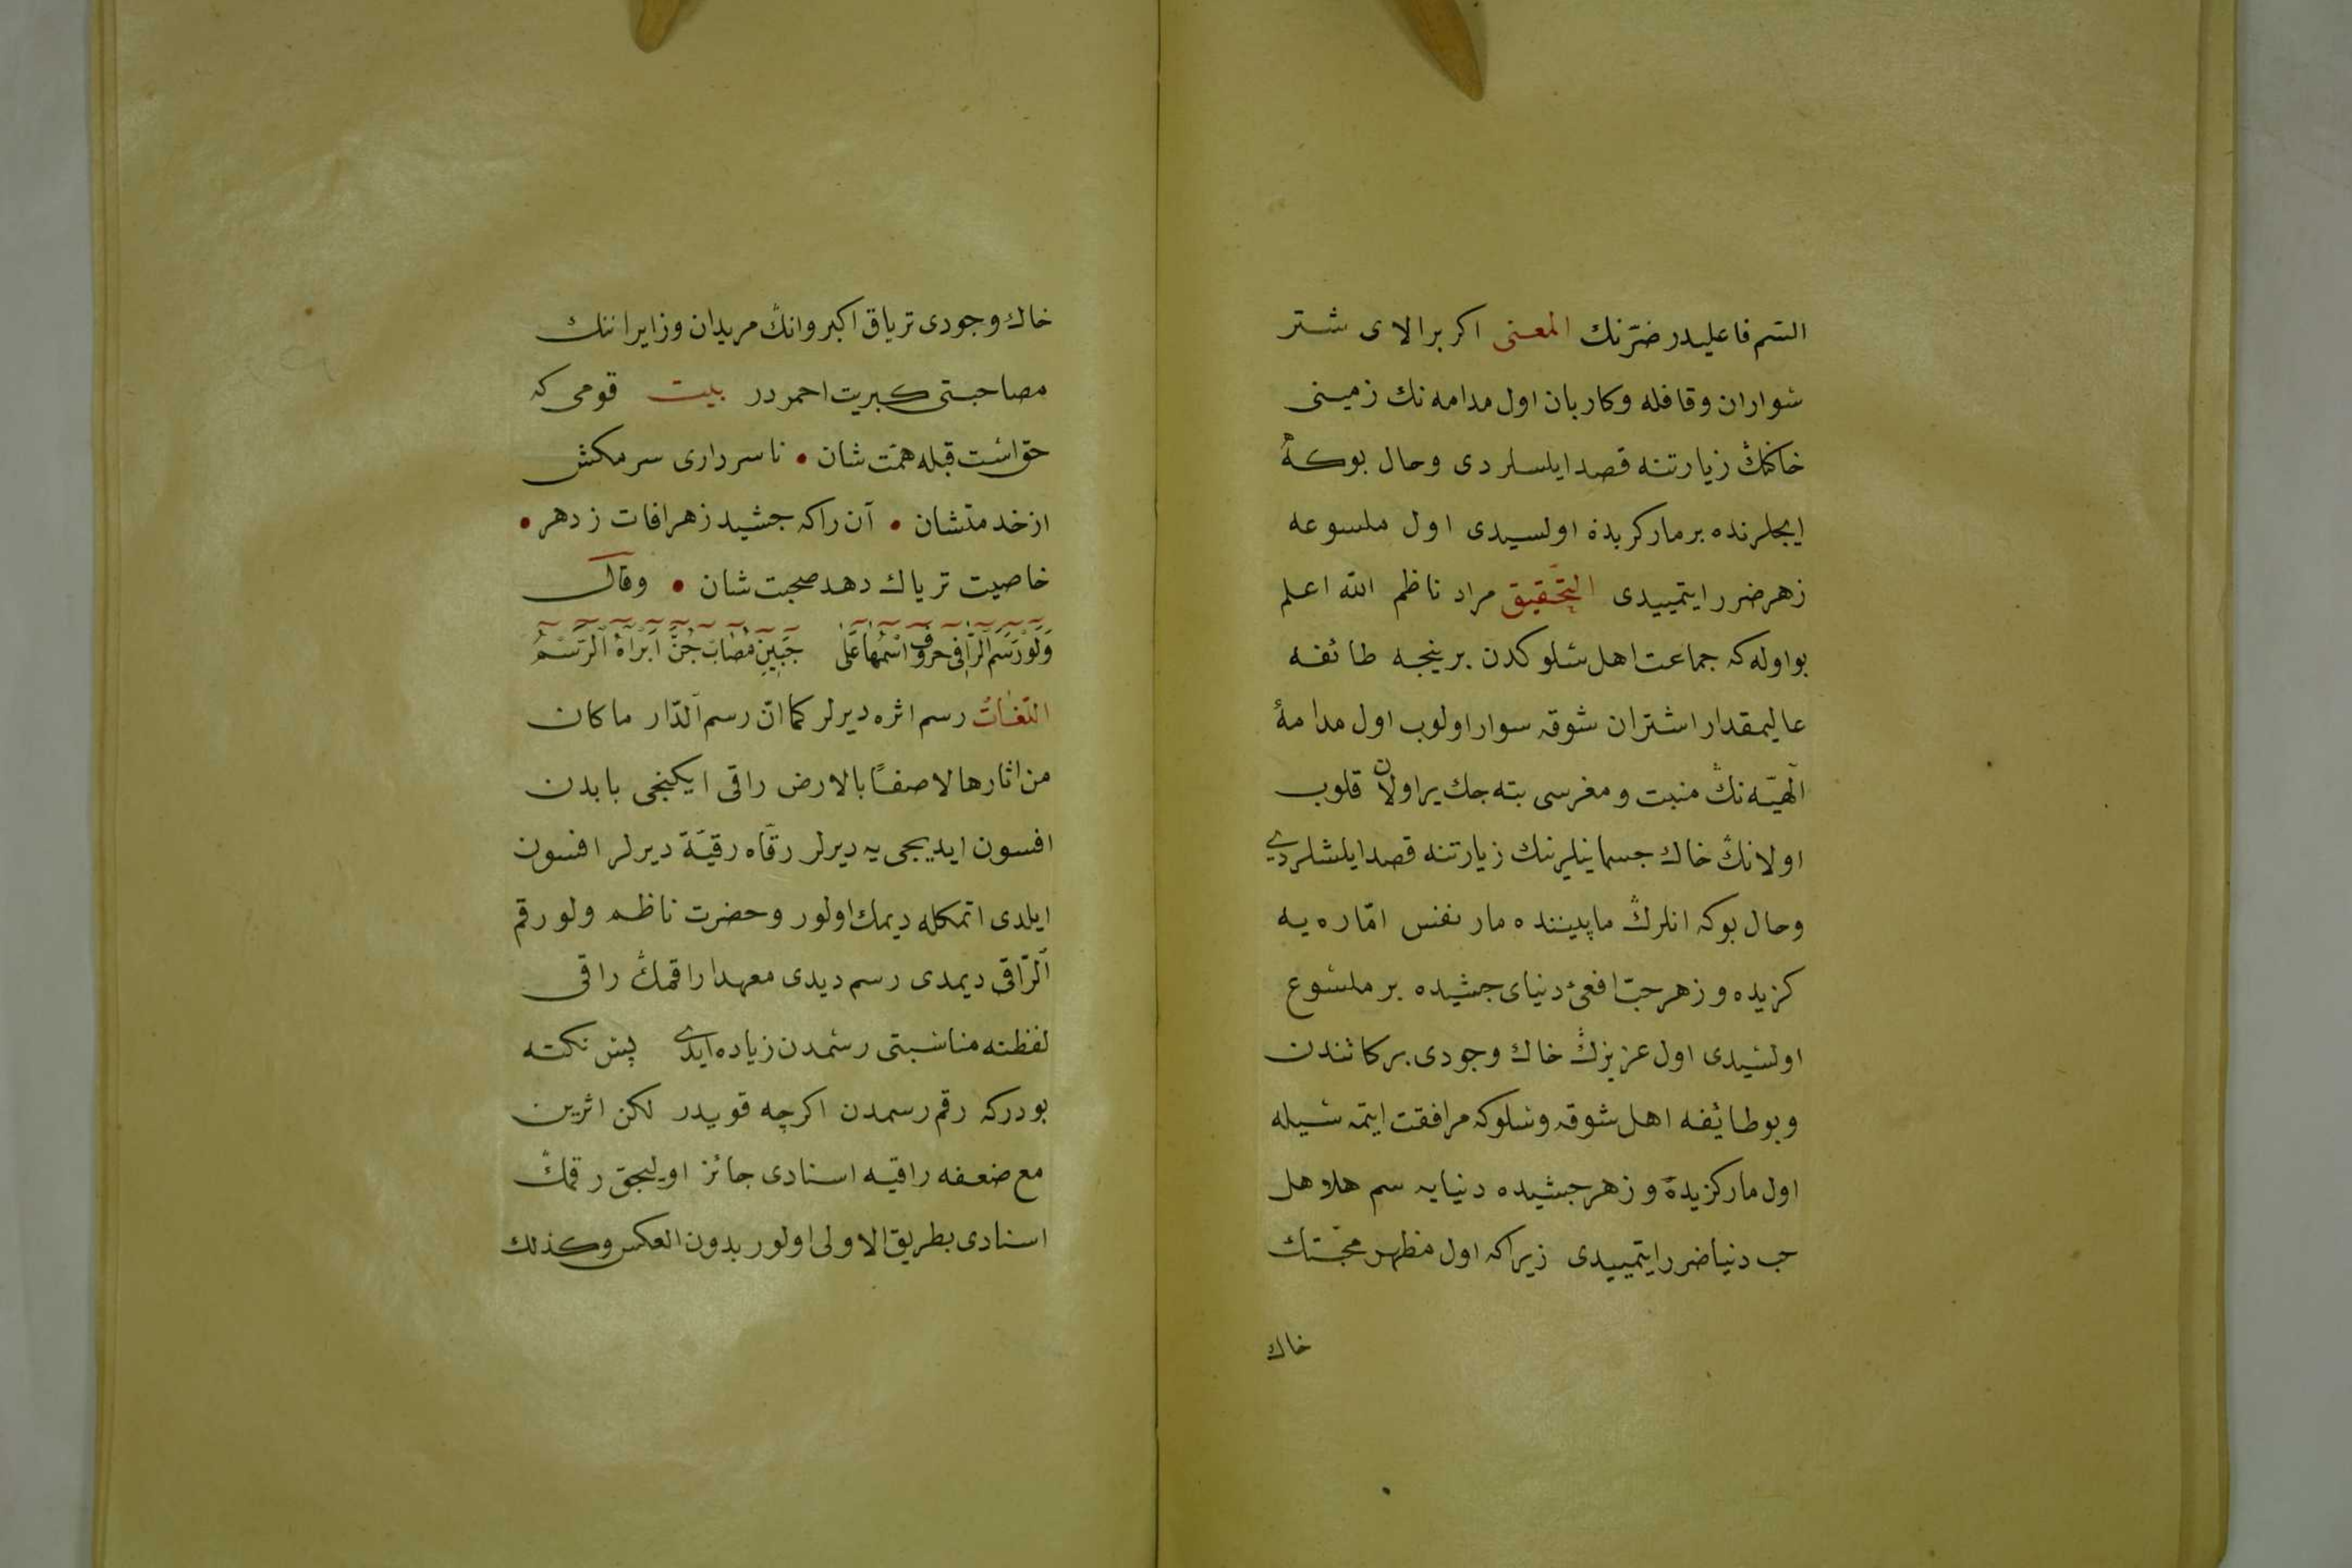 السّم فاعليدر ضرّنك المعنى اكر بر الاى شتر
سواران وقافله وكاربان اول مدامه نك زمينى
خاكنڭ زيارتنه قصد ايلسلردى وحال بوكه
ايچلرنده بر مار كزيده اولسيدى اول ملسوعه
زهر ضرر ايتميیدى التحقيق مراد ناظم الله اعلم
بو اوله كه جماعت اهل سلوكدن بر نيجه طائفه
عاليمقدار اشتران شوقه سوار اولوب اول مدامۀ
الٓهيّه نڭ منبت ومغرسى بته جك ير اولان قلوب
اولانڭ خاك جسمانيلرينك زيارتنه قصد ايلشلردى
وحال بوكه انلرڭ مابيننده مار نفس امّاره يه
كزيده وزهر حبّ افعئ دنياى چشيده بر ملسوع
اولسيدى اول عزيزڭ خاك وجودى بركاتندن
وبو طائفه اهل شوقه وسلوكه مرافقت ايتمسيله
اول مار كزيدۀ وزهر چشيده دنيايه سم هلاهل
حب دنيا ضرر ايتميیدى زيراكه اول مظهر محبّتك
خاك
خاك وجودى ترياق اكبر وانڭ مريدان وزايراننك
مصاحبتى كبريت احمردر بيت قومى كه
حق است قبله همّت شان • تا سردارى سر مكش
از خدمتشان • آن راكه چشيد زهر افات ز دهر •
خاصيت ترياك دهد صحبت شان • وقال
وَلَوْ رَسَمَ الرَّاقِى حُرُوفَ اسْمِهَا عَلَى جَبِينِ مُصَابٍ جُنَّ اَبْرَاَهُ الرَّسْمُ
اللغات رسم اثره ديرلر كما انّ رسم الدّار ما كان
من اثارها لاصقًا بالارض راقى ايكنجى بابدن
افسون ايديجى يه ديرلر رقّاه رقيَة ديرلر افسون
ايلدى اتمكله ديمك اولور وحضرت ناظم ولو رقم
الرّاقى ديمدى رسم ديدى معهذا رقمڭ راقى
لفظنه مناسبتى رسمدن زياده ايدى پس نكته
بودركه رقم رسمدن اكرچه قويدر لكن اثرين
مع ضعفه راقيه اسنادى جائز اوليجق رقمڭ
اسنادى بطريق الاولى اولور بدون العكس وكذلك